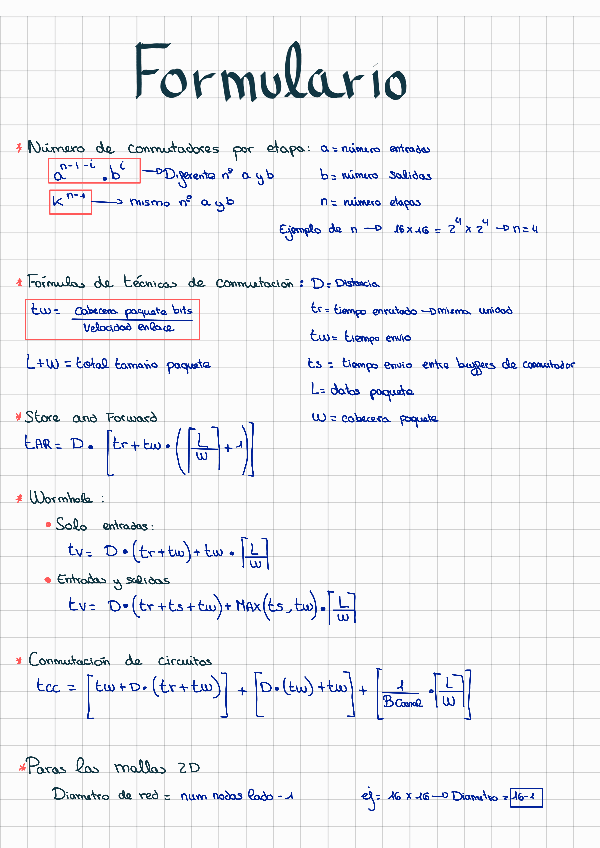 Formulario
* Número de conmutadores por etapa: a = número entradas
a^(n-1-i) · b^i → Diferente nº a y b
b = número salidas
K^(n-1) → mismo nº a y b
n = número etapas
Ejemplo de n → 16x16 = 2^4 x 2^4 → n=4
* Fórmulas de técnicas de conmutación: D = Distancia
tw = cabecera paquete bits / velocidad enlace
tr = tiempo enrutado → misma unidad
tw = tiempo envio
L+W = total tamaño paquete
ts = tiempo envio entre buffers de conmutador
L = datos paquete
* Store and Forward
W = cabecera paquete
tAR = D · [tr + tw · (⌈L/W⌉ + 1)]
* Wormhole:
• Solo entradas:
tv = D · (tr + tw) + tw · ⌈L/W⌉
• Entradas y salidas
tv = D · (tr + ts + tw) + MAX(ts, tw) · ⌈L/W⌉
* Conmutación de circuitos
tcc = [tw + D · (tr + tw)] + [D · (tw) + tw] + [1/Bcanal · ⌈L/W⌉]
* Paras las mallas 2D
Diametro de red = num nodos lado - 1
ej = 16 x 16 → Diametro = 16-1